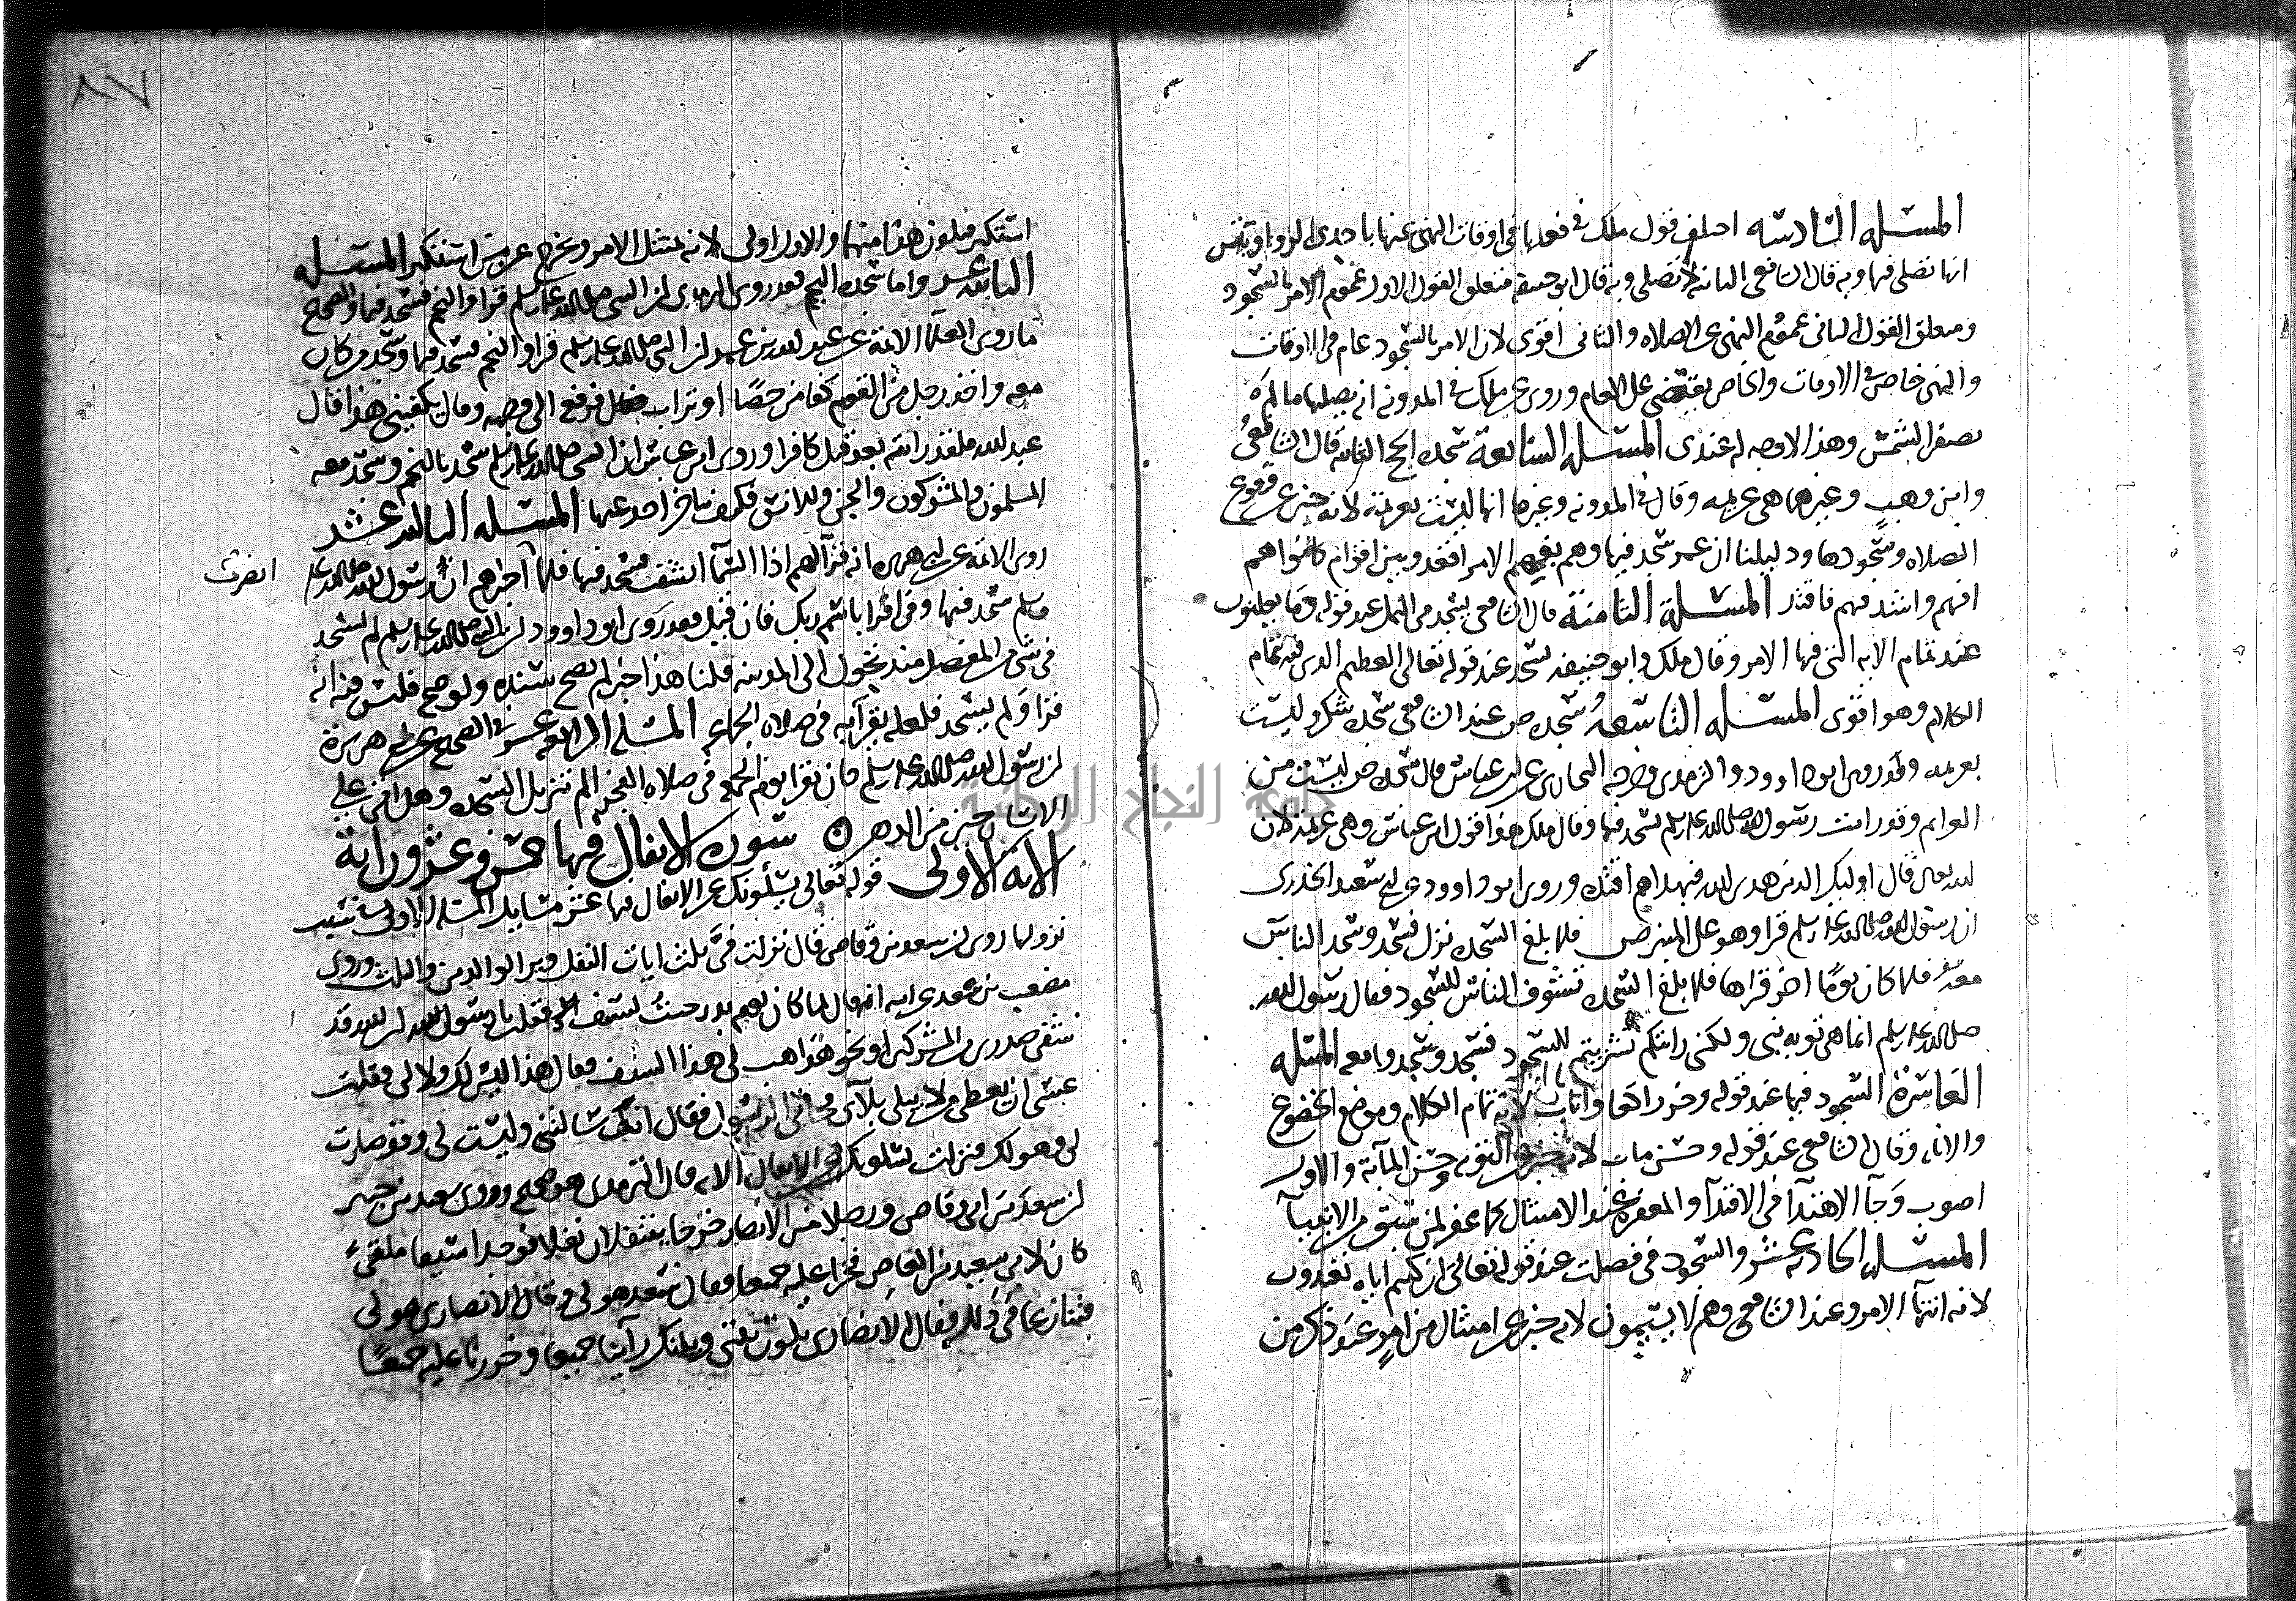 المسله السادسه اختلف قول ملك في فعلها في اوقات النهى عنها باحدى الروايتين
انها تصلى فيها وبه قال الشافعى الثانيه لا تصلى وبه قال ابو حنيفة متعلق القول الاول عموم الامر بالسجود
ومتعلق القول الثانى عموم النهى عن الصلاه والثانى اقوى لان الامر بالسجود عام في الاوقات
والنهى خاص في الاوقات والخاص يقضى على العام وروى عن ملك في المدونه انه يصليها ما لم
تصفر الشمس وهذا لا وجه له عندى المسله السابعة سجده الحج الثانيه قال الشافعى
وابن وهب وغيرهما هى عزيمه وقال في المدونه وغيرها انها ليست بعزيمة لانه خبر عن وقوع
الصلاه وسجودها ودليلنا ان عمر سجد فيها وهم بفهم الامر اقعد وبين اقوام كانوا هم
افهم واسد فبهم فاقتد المسله الثامنة قال الشافعى يسجد في النمل عند قوله وما يعلنون
عند تمام الايه التى فيها الامر وقال ملك وابو حنيفه يسجد عند قوله تعالى العظيم الذى فيه تمام
الكلام وهو اقوى المسله التاسعه سجده ص عند الشافعى سجده شكر وليست
بعزيمه وقد روى ابو داوود والترمذى وخرجه البخارى عن ابن عباس قال سجده ص ليست من
العزايم وقد رايت رسول الله صلى الله عليه وسلم يسجد فيها وقال ملك هذا قول ابن عباس وهى عزيمة لان
الله تعالى قال اوليك الذين هدى الله فبهداهم اقتده وروى ابو داوود عن ابى سعيد الخدرى
ان رسول الله صلى الله عليه وسلم قرا وهو على المنبر ص فلما بلغ السجده نزل فسجد وسجد الناس
معه فلما كان يوما اخر قراها فلما بلغ السجده تشوف الناس للسجود فقال رسول الله
صلى الله عليه وسلم انما هى توبه نبى ولكنى رايتكم تشزنتم للسجود فسجد وسجدوا معه المسله
العاشرة السجود فيها عند قوله وخر راكعا واناب لانه تمام الكلام وموضع الخضوع
والانابه وقال الشافعى عند قوله وحسن ماب لانه خبر عن التوبه وحسن المآبة والاول
اصوب رجآ الاهتدآ في الاقتدآ والمغفره عند الامتثال كما غفر لمن سبق من الانبيآ
المسله الحاديه عشر والسجود في فصلت عند قوله تعالى ان كنتم اياه تعبدون
لانه انتهآ الامر وعند الشافعى وهم لا يسمون لانه خبر عن امتثال من امر عند ذكر من
٨٧
استكبر فيكون هذا منهما والاول اولى لانه يمتثل الامر ويخرج عن من استنكر المسله
الثانيه عشر واما سجده النجم فقد روى الترمذى ان النبى صلى الله عليه وسلم قرا والنجم فسجد فيها والصحيح
ما روى العلمآ الائمة عن عبد الله بن عمر ان النبى صلى الله عليه وسلم قرا والنجم فسجد فيها وسجد من كان
معه واخذ رجل من القوم كفا من حصا او تراب فرفع الى وجهه وقال يكفينى هذا قال
عبد الله فلقد رايته بعد قتل كافرا وروى ابن عباس ان النبى صلى الله عليه وسلم سجد بالنجم وسجد معه
المسلمون والمشركون والجن والانس فكيف يتاخر احد عنها المسله الثالثه عشر
روى الائمة عن ابى هريره انه قرآ لهم اذا السمآ انشقت فسجد فيها فلما اخبرهم ان رسول الله صلى الله عليه
انصرف
وسلم سجد فيها وفي اقرا باسم ربك فان قيل فقد روى ابو داوود ان النبى صلى الله عليه وسلم لم يسجد
في شى من المفصل منذ تحول الى المدينه قلنا هذا خبر لم يصح سنده ولو صح فليس فيه انه
قرا ولم يسجد فلعله لم يقرا به في صلاه الجماعه المسله الرابعه عشر في الصحيح عن ابى هريرة
ان رسول الله صلى الله عليه وسلم كان يقرا يوم الجمعه في صلاه الفجر الم تنزيل السجده وهل اتى على
الانسان حين من الدهر ن سوره الانفال فيها خمس وعشرون ايه
الايه الاولى قوله تعالى يسألونك عن الانفال فيها عشر مسايل المسله الاولى في سبب
نزولها روى ان سعد بن وقاص قال نزلت في ثلث ايات النفل وبر الوالدين والثلث وروى
مصعب بن سعد عن ابيه انه قال لما كان يوم بدر جيت بسيف فقلت يا رسول الله ان الله قد
شفى صدرى من المشركين او نحو هذا هب لى هذا السيف فقال هذا ليس لك ولا لى فقلت
عسى ان يعطى من لا يبلى بلآى فجانى الرسول فقال انك سالتنى وليست لى وقد صارت
لى وهو لك فنزلت يسلونك عن الانفال الايه قال الترمذى هو صحيح وروى سعيد بن جبير
ان سعد بن ابى وقاص ورجلا من الانصار خرجا يتنفلان نفلا فوجدا سيفا ملقى
كان لابى سعيد بن العاص فخرا عليه جميعا فقال سعد هو لى وقال الانصارى هو لى
فتنازعا في ذلك فقال الانصارى يكون بينى وبينك رآينا جميعا وخررنا عليه جميعا
جامعة النجاح الوطنية